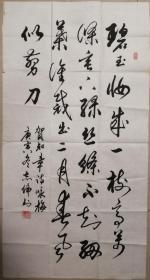 碧玉妆成一树高万
条垂下绿丝绦不知细
葉谁裁出二月春风
似剪刀
贺知章诗咏
庚寅冬志